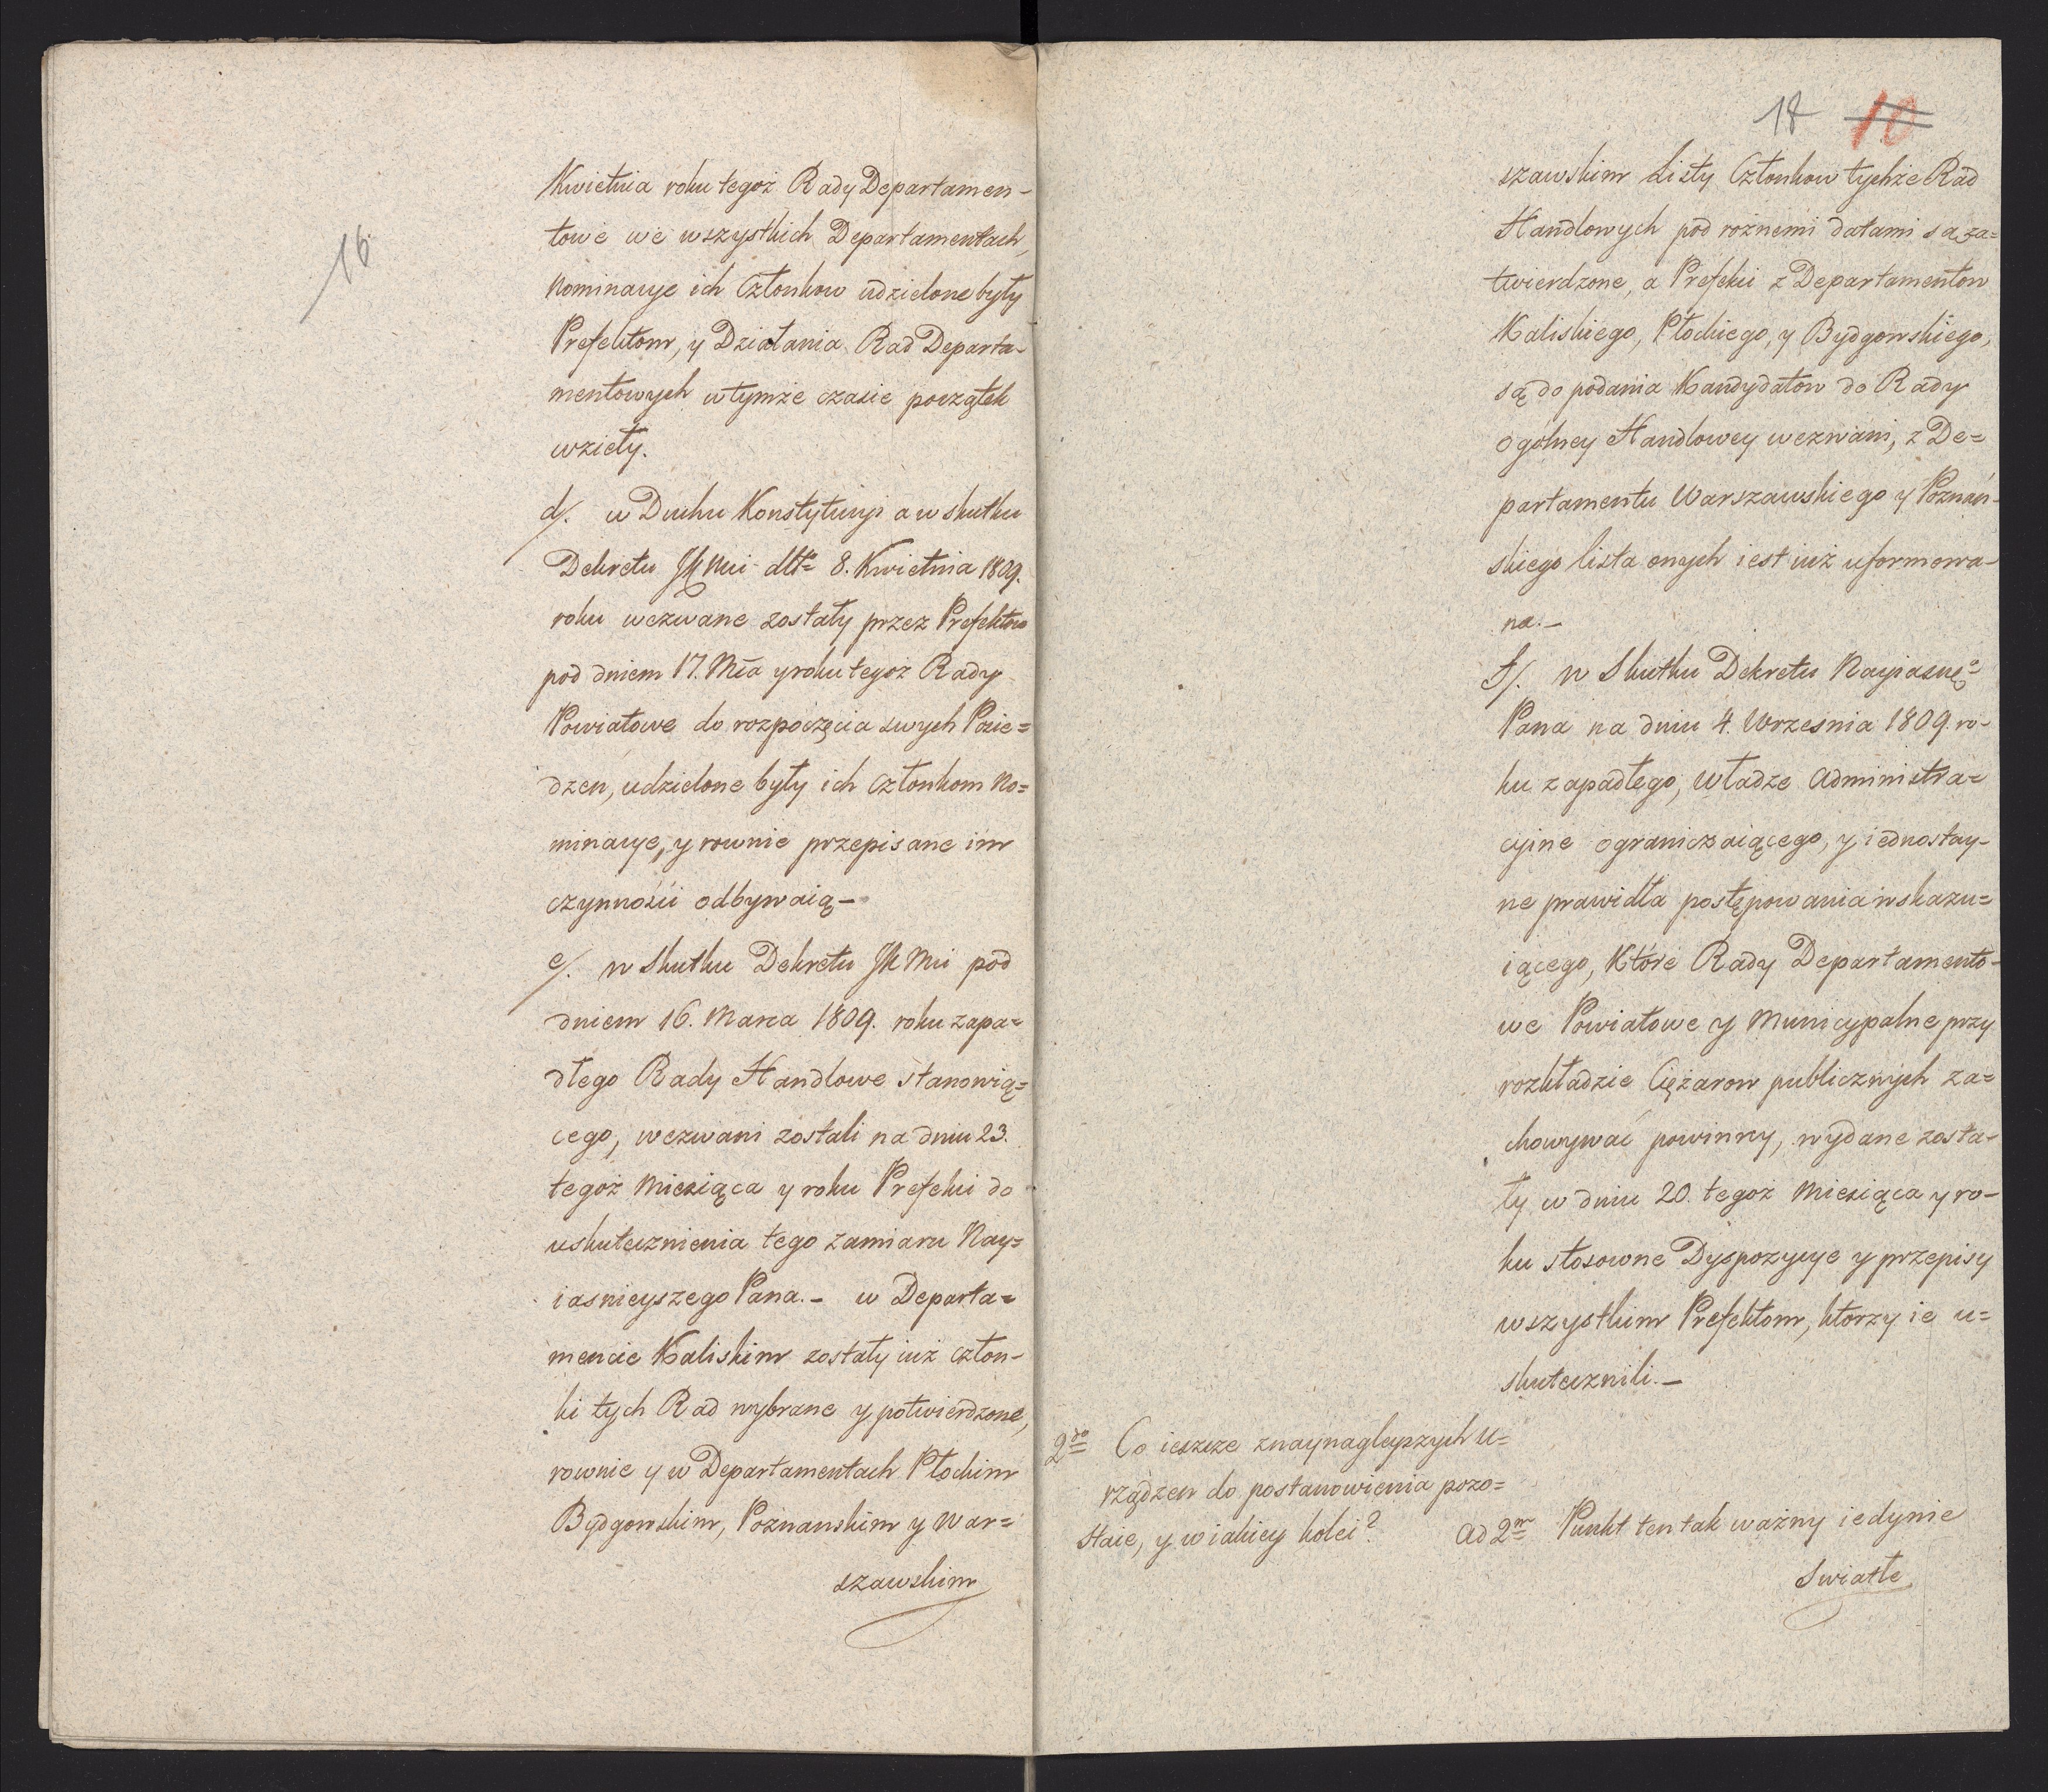 16
Kwietnia roku tegoż Rady Departamen-
towe we wszystkich Departamentach,
Nominacye ich Członkow udzielone były
Prefektom, y Działania Rad Departa-
mentowych w tymże czasie początek
wzieły.
d/. w Duchu Konstytucyi a w skutku
Dekretu JKMci dtto 8. Kwietnia 1809.
roku wezwane zostały przez Prefektow
pod dniem 17. Mca y roku tegoż Rady
Powiatowe do rozpoczęcia swych Posie=
dzen, udzielone były ich Członkom No=
minacye, y rownie przepisane im
czynności odbywaią –
e/. w Skutku Dekretu JKMci pod
dniem 16. Marca 1809. roku zapa=
dłego Rady Handlowe stanowią=
cego, wezwani zostali na dniu 23.
tegoż Miesiąca y roku Prefekci do
uskutecznienia tego zamiaru Nay=
iasnieyszego Pana. – w Departa=
mencie Kaliskim zostały iuż człon-
ki tych Rad wybrane y potwierdzone,
rownie y w Departamentach Płockim
Bydgowskim, Poznanskim y War=
szawskim
18 10
szawskim Listy Członkow tychże Rad
Handlowych pod rożnemi datami są za=
twierdzone, a Prefekci z Departamentow
Kaliskiego, Płockiego, y Bydgowskiego,
są do podania Kandydatow do Rady
Ogolney Handlowey wezwani, z De=
partamentu Warszawskiego y Poznań-
skiego lista onych iest iuż uformowa-
na. –
f/. w Skutku Dekretu Nayiasngo
Pana na dniu 4. Wrzesnia 1809. ro-
ku zapadłego, Władze Administra=
cyine ograniczaiącego, y iednostay-
ne prawidła postępowania wskazu=
iącego, Które Rady Departamento-
we Powiatowe y Municypalne przy
rozkładzie Ciężarow publicznych za=
chowywać powinny, wydane zosta-
ły w dniu 20. tegoż Miesiąca y ro-
ku stosowne Dyspozycye y przepisy
wszystkim Prefektom, ktorzy ie u=
skutecznili. –
2do Co ieszcze znaynagleyszych U=
rządzen do postanowienia pozo=
staie, y w iakiey kolei?
Ad 2m Punkt ten tak ważny iedynie
Swiatłe